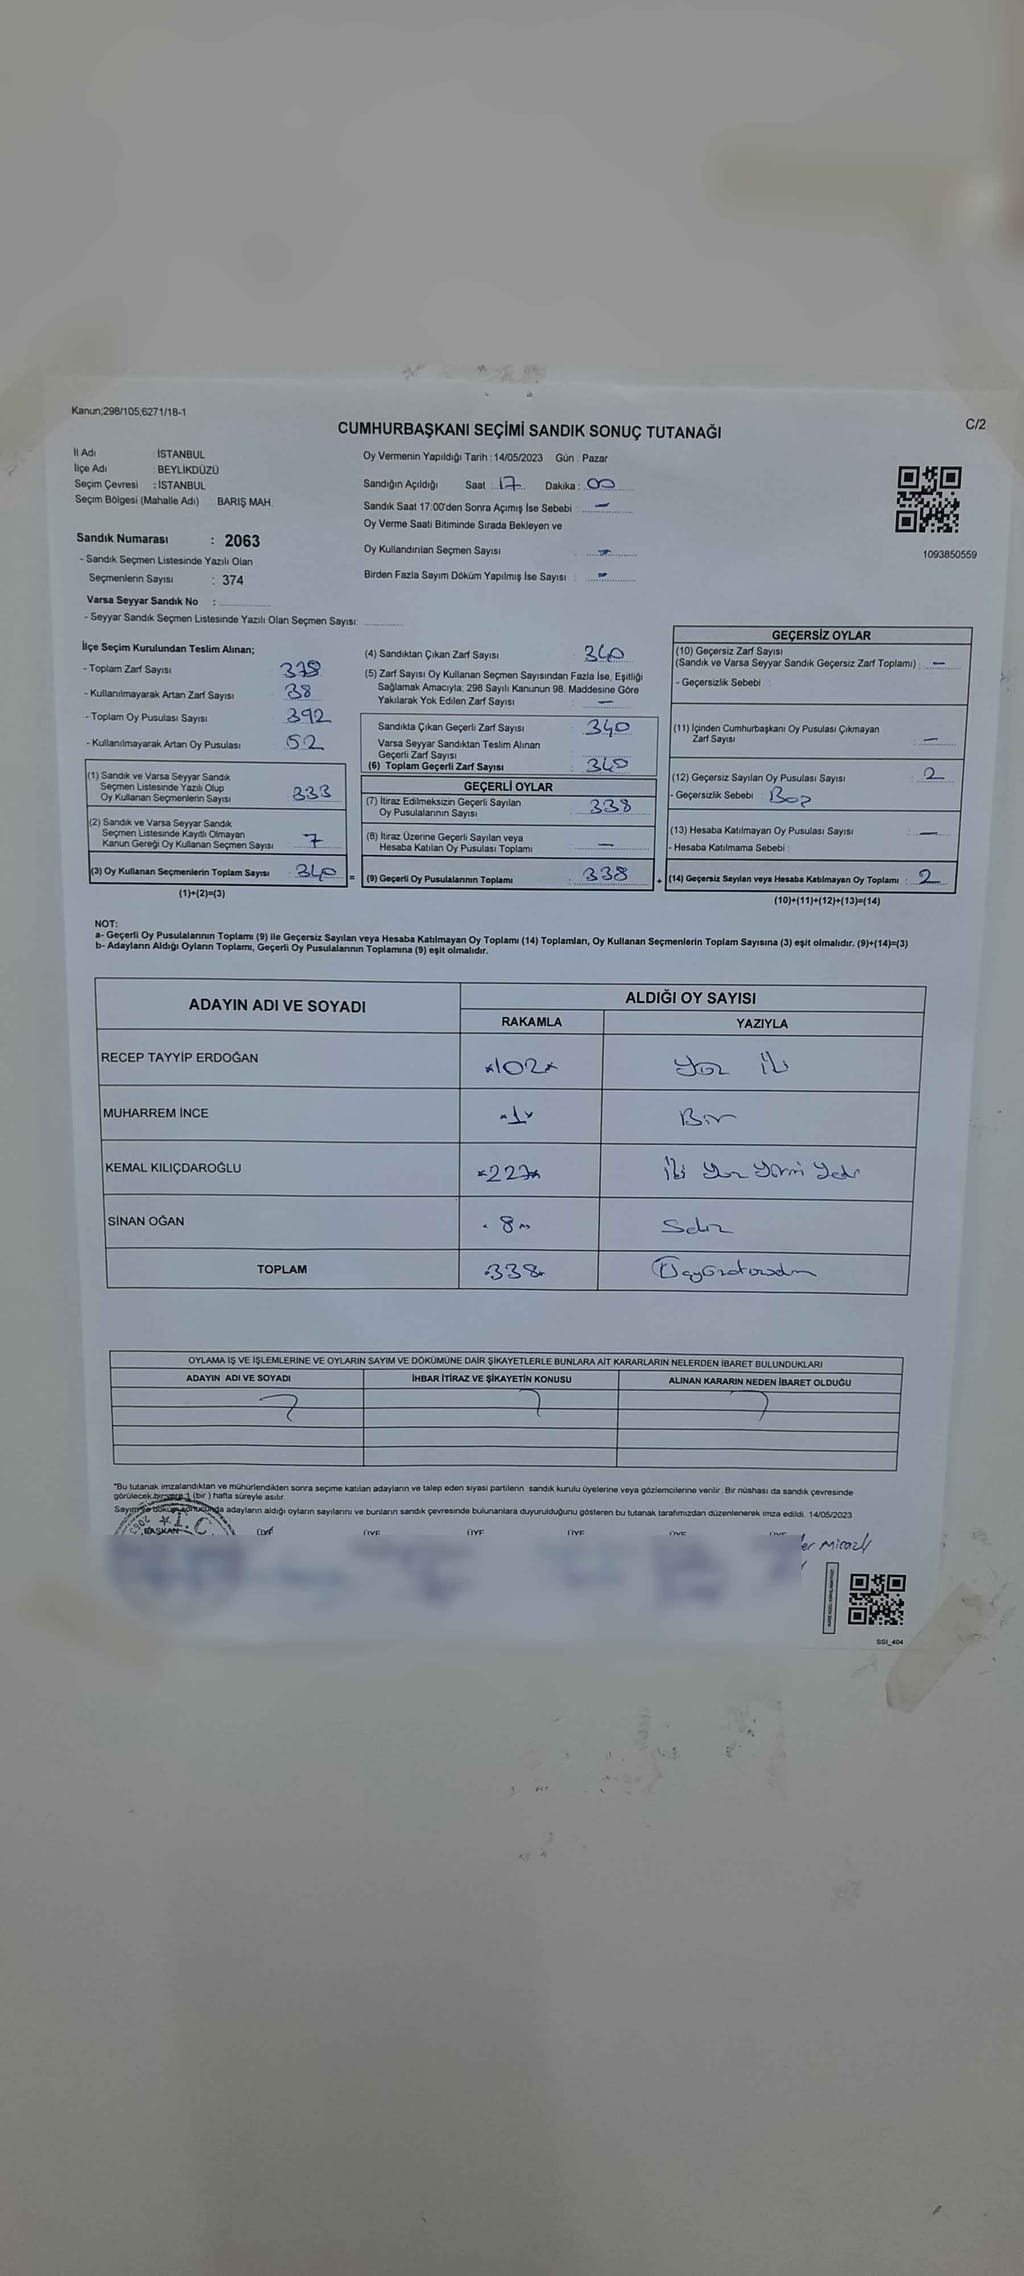 Kanun;298/105;6271/18-1
C/2
CUMHURBAŞKANI SEÇİMİ SANDIK SONUÇ TUTANAĞI
İl Adı : İSTANBUL
İlçe Adı : BEYLİKDÜZÜ
Seçim Çevresi : İSTANBUL
Seçim Bölgesi (Mahalle Adı) BARIŞ MAH.
Sandık Numarası : 2063
- Sandık Seçmen Listesinde Yazılı Olan
Seçmenlerin Sayısı : 374
Varsa Seyyar Sandık No :
- Seyyar Sandık Seçmen Listesinde Yazılı Olan Seçmen Sayısı:
Oy Vermenin Yapıldığı Tarih : 14/05/2023 Gün : Pazar
Sandığın Açıldığı Saat : 17 Dakika : 00
Sandık Saat 17:00'den Sonra Açımış İse Sebebi : —
Oy Verme Saati Bitiminde Sırada Bekleyen ve
Oy Kullandırılan Seçmen Sayısı : —
Birden Fazla Sayım Döküm Yapılmış İse Sayısı : —
1093850559
İlçe Seçim Kurulundan Teslim Alınan;
- Toplam Zarf Sayısı :
- Kullanılmayarak Artan Zarf Sayısı : 38
- Toplam Oy Pusulası Sayısı : 392
- Kullanılmayarak Artan Oy Pusulası : 52
(1) Sandık ve Varsa Seyyar Sandık
Seçmen Listesinde Yazılı Olup
Oy Kullanan Seçmenlerin Sayısı : 333
(2) Sandık ve Varsa Seyyar Sandık
Seçmen Listesinde Kayıtlı Olmayan
Kanun Gereği Oy Kullanan Seçmen Sayısı : 7
(3) Oy Kullanan Seçmenlerin Toplam Sayısı : 340 =
(1)+(2)=(3)
(4) Sandıktan Çıkan Zarf Sayısı : 340
(5) Zarf Sayısı Oy Kullanan Seçmen Sayısından Fazla İse, Eşitliği
Sağlamak Amacıyla; 298 Sayılı Kanunun 98. Maddesine Göre
Yakılarak Yok Edilen Zarf Sayısı : —
Sandıkta Çıkan Geçerli Zarf Sayısı : 340
Varsa Seyyar Sandıktan Teslim Alınan
Geçerli Zarf Sayısı :
(6) Toplam Geçerli Zarf Sayısı : 340
GEÇERLİ OYLAR
(7) İtiraz Edilmeksizin Geçerli Sayılan
Oy Pusulalarının Sayısı : 338
(8) İtiraz Üzerine Geçerli Sayılan veya
Hesaba Katılan Oy Pusulası Toplamı : —
(9) Geçerli Oy Pusulalarının Toplamı : 338 +
GEÇERSİZ OYLAR
(10) Geçersiz Zarf Sayısı
(Sandık ve Varsa Seyyar Sandık Geçersiz Zarf Toplamı) : —
- Geçersizlik Sebebi :
(11) İçinden Cumhurbaşkanı Oy Pusulası Çıkmayan
Zarf Sayısı : —
(12) Geçersiz Sayılan Oy Pusulası Sayısı : 2
- Geçersizlik Sebebi : Boş
(13) Hesaba Katılmayan Oy Pusulası Sayısı : —
- Hesaba Katılmama Sebebi :
(14) Geçersiz Sayılan veya Hesaba Katılmayan Oy Toplamı : 2
(10)+(11)+(12)+(13)=(14)
NOT:
a- Geçerli Oy Pusulalarının Toplamı (9) ile Geçersiz Sayılan veya Hesaba Katılmayan Oy Toplamı (14) Toplamları, Oy Kullanan Seçmenlerin Toplam Sayısına (3) eşit olmalıdır. (9)+(14)=(3)
b- Adayların Aldığı Oyların Toplamı, Geçerli Oy Pusulalarının Toplamına (9) eşit olmalıdır.
ADAYIN ADI VE SOYADI
ALDIĞI OY SAYISI
RAKAMLA YAZIYLA
RECEP TAYYİP ERDOĞAN 102 Yüz iki
MUHARREM İNCE 1 Bir
KEMAL KILIÇDAROĞLU 227 İki Yüz Yirmi Yedi
SİNAN OĞAN 8 Sekiz
TOPLAM 338 Üçyüzotuzsekiz
OYLAMA İŞ VE İŞLEMLERİNE VE OYLARIN SAYIM VE DÖKÜMÜNE DAİR ŞİKAYETLERLE BUNLARA AİT KARARLARIN NELERDEN İBARET BULUNDUKLARI
ADAYIN ADI VE SOYADI İHBAR İTİRAZ VE ŞİKAYETİN KONUSU ALINAN KARARIN NEDEN İBARET OLDUĞU
*Bu tutanak imzalandıktan ve mühürlendikten sonra seçime katılan adayların ve talep eden siyasi partilerin sandık kurulu üyelerine veya gözlemcilerine verilir. Bir nüshası da sandık çevresinde
görülecek bir yere 1 (bir ) hafta süreyle asılır.
Sayım ve döküm sonucunda adayların aldığı oyların sayılarını ve bunların sandık çevresinde bulunanlara duyurulduğunu gösteren bu tutanak tarafımızdan düzenlenerek imza edildi. 14/05/2023
BAŞKAN ÜYE ÜYE ÜYE ÜYE ÜYE ÜYE
T.C.
2063
SSI_404